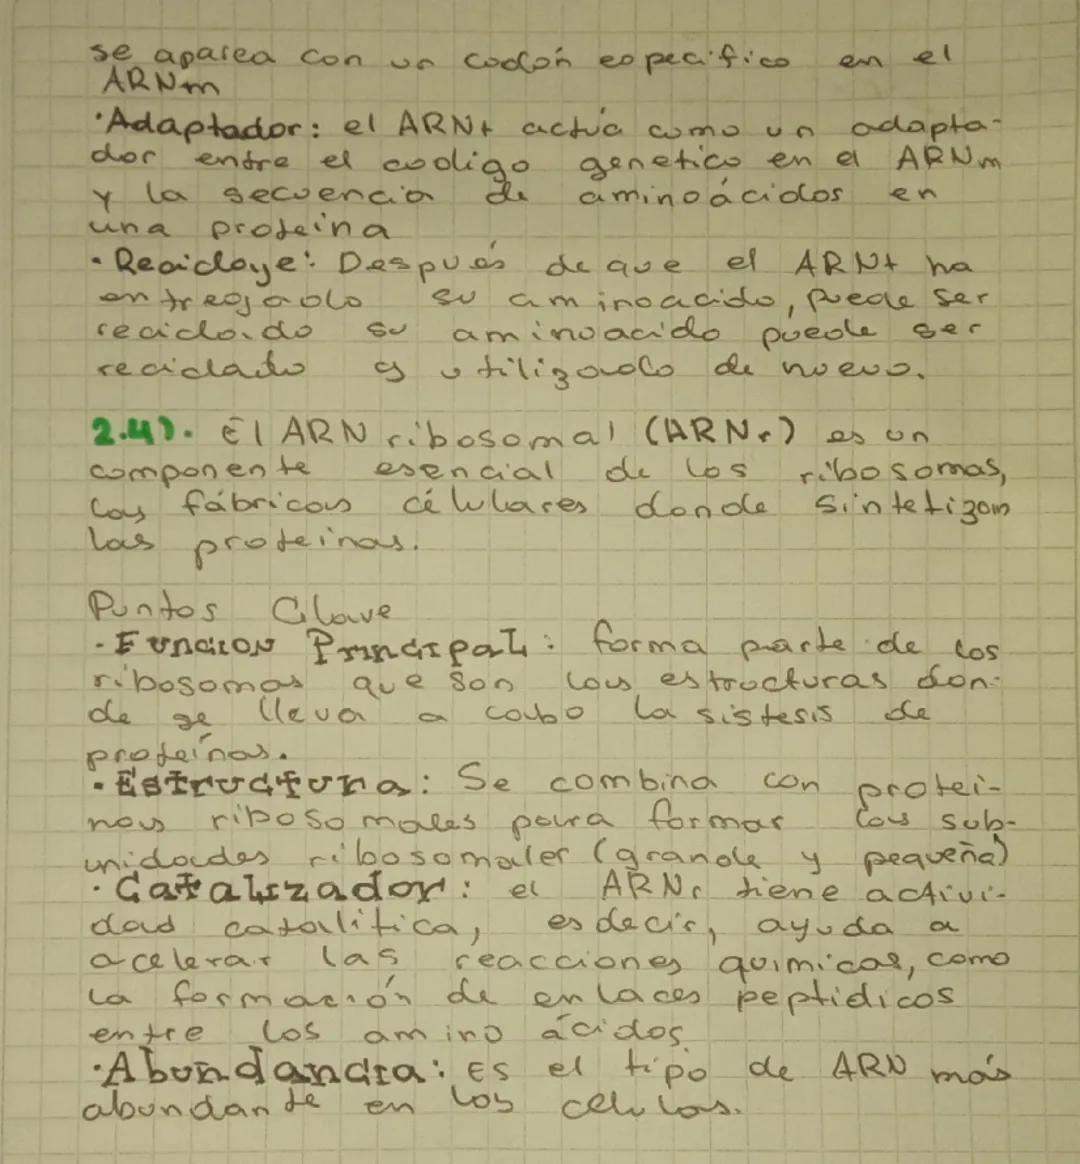 se aparea con un codón especifico en el
ARNm
·Adaptador: el ARNt actúa como un adapta-
dor entre el codigo genetico en el ARNm
y la secuencia de aminoácidos en
una proteina
·Recicloye: Después de que el ARNt ha
entregado su aminoacido, puede ser
reciclo.do su aminoacido puede ser
reciclado y utilizado de nuevo.
2.4). El ARN ribosomal (ARNr) es un
componente esencial de los ribosomas,
las fábricas célulares donde sintetizan
las proteinas.
Puntos Clave
·Funcion Principal: forma parte de los
ribosomas que son las estructuras don-
de se lleva a cabo la sistesis de
proteínas.
·Estructura: Se combina con protei-
nas ribosomales para formar las sub-
unidades ribosomaler (grande y pequeña)
·Catalizador: el ARNr tiene activi-
dad catalitica, es decir, ayuda a
acelerar las reacciones quimicas, como
la formación de enlaces peptidicos
entre los amino ácidos.
·Abundancia: Es el tipo de ARN más
abundante en los celulas.